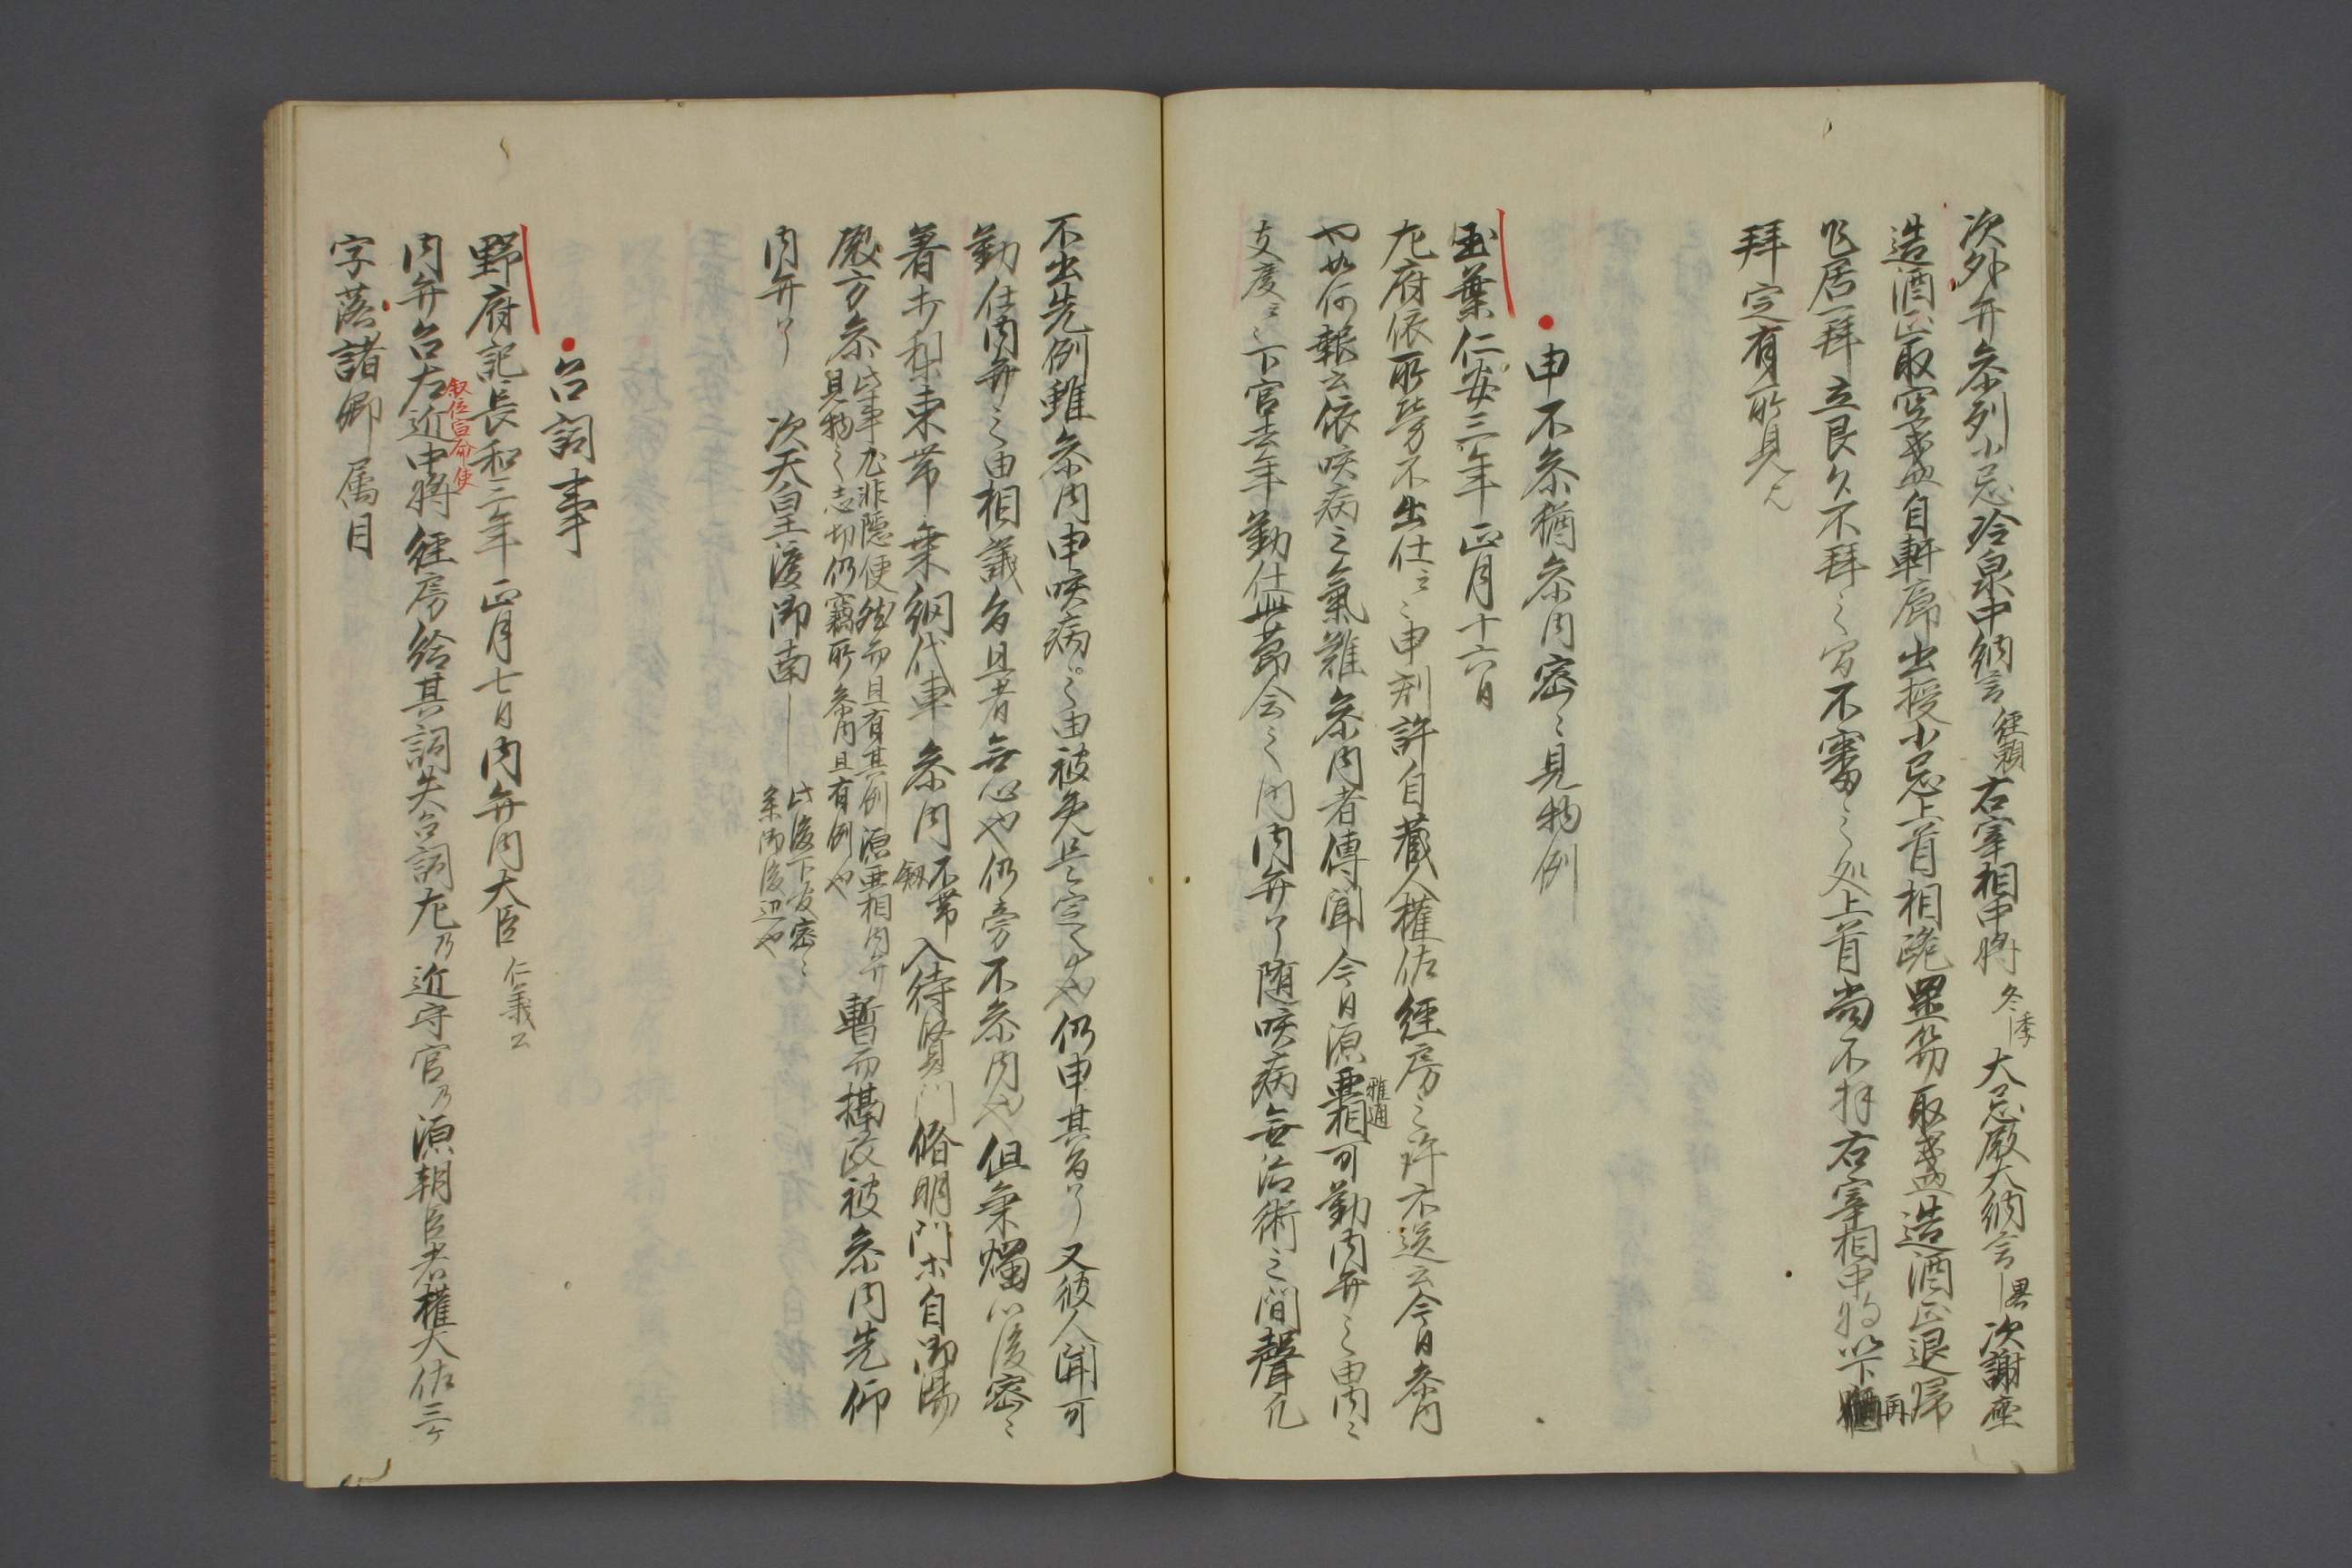 次外弁参列小忌冷泉中納言経頼右宰相中将冬季大忌殿大納言次謝座
造酒正取空盞自軒廊出授小忌上首相跪置笏取盞造酒正退帰
居一拝立良久不拝之間不審之処上首尚不拝右宰相中将以下再
拝定有所見
申不参猶参内密々見物例
玉葉仁安三年正月十六日
左府依所労不出仕云々申刻許自蔵人権佐経房之許示送云今日参内
也如何報云依咳病之氣難参内者傳聞今日源亜相雅通可勤内弁之由内々
支度云々下官去年勤仕無節会之内内弁了随咳病無治術之間聲凡
不出先例雖参内申咳病之由被免是定事也仍申其旨了又彼人聞可
勤仕内弁之由相議旨且者無心也仍旁不参内也但秉燭以後密々
着束帯乗網代車参内不帯釼入待賢門脩明門等自御湯
殿方参此事尤非隠便然而且有其例源亜相内弁見物之志切仍竊所参内且有例也暫而摂政被参内先仰
内弁了　次天皇渡御南―此後下官密々参御後辺也
召詞事
野府記長和三年正月七日内弁内大臣仁義公
内弁召左近中将経房給其詞失召詞左乃近守官乃源朝臣者権大佐三ケ
叙位宣命使
字落諸卿属目